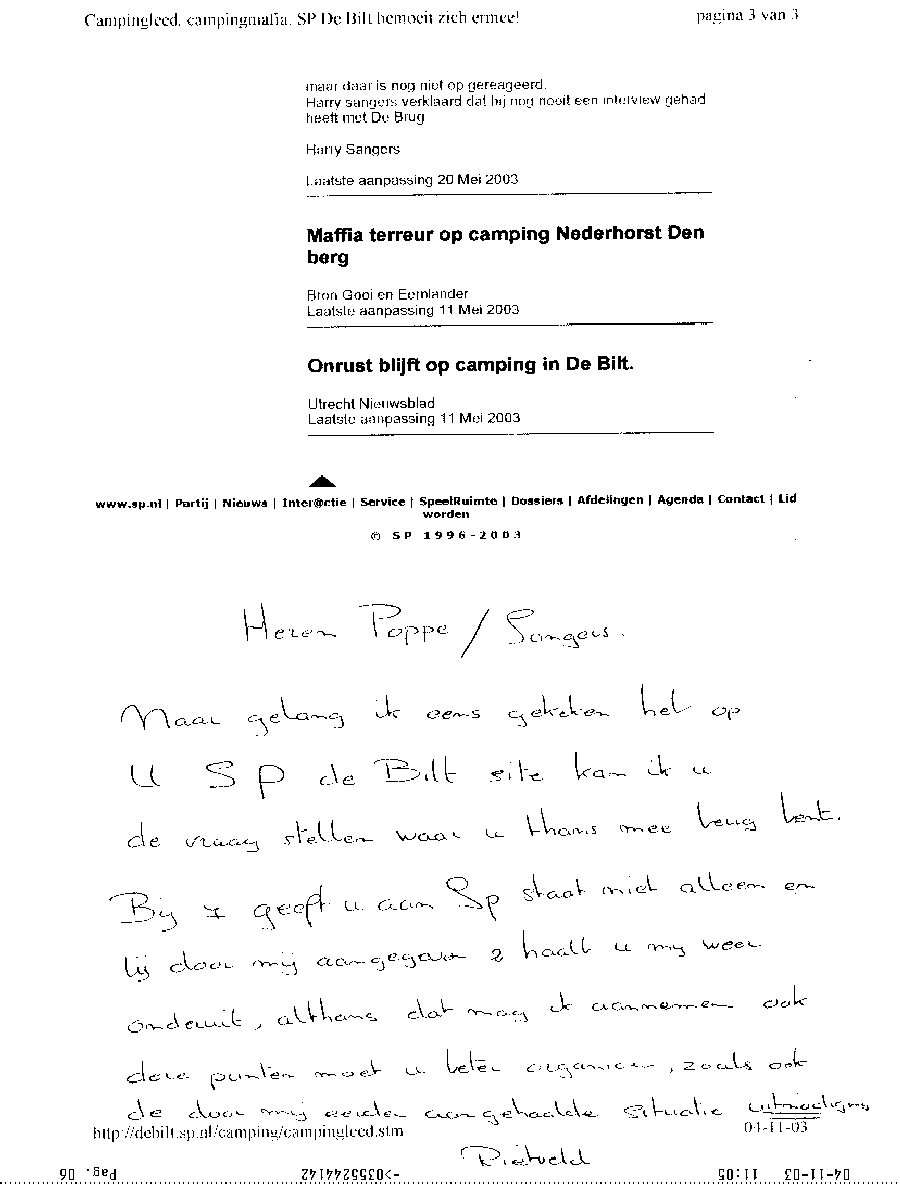 Campingleed, campingmafia, SP De Bilt bemoeit zich ermee!
pagina 3 van 3
maar daar is nog niet op gereageerd.
Harry sangers verklaard dat hij nog nooit een interview gehad
heeft met De Brug
Harry Sangers
Laatste aanpassing 20 Mei 2003
Maffia terreur op camping Nederhorst Den
berg
Bron Gooi en Eemlander
Laatste aanpassing 11 Mei 2003
Onrust blijft op camping in De Bilt.
Utrecht Nieuwsblad
Laatste aanpassing 11 Mei 2003
www.sp.nl | Partij | Nieuws | Inter@ctie | Service | SpeelRuimte | Dossiers | Afdelingen | Agenda | Contact | Lid
worden
© SP 1996-2003
Heren Poppe / Sangers.
Naar gelang ik eens gekeken heb op
U SP de Bilt site kan ik u
de vraag stellen waar u thans mee bezig bent.
Bij 1 geeft u aan Sp staat niet alleen en
bij door mij aangegeven 2 haalt u mij weer
onderuit, althans dat mag ik aannemen ook
deze punten moet u beter organiseren, zoals ook
de door mij eerder aangehaalde situatie uitnodiging
http://debilt.sp.nl/camping/campingleed.stm
04-11-03
Rietveld
04-11-03 11:05
->0355244142
Pag. 06